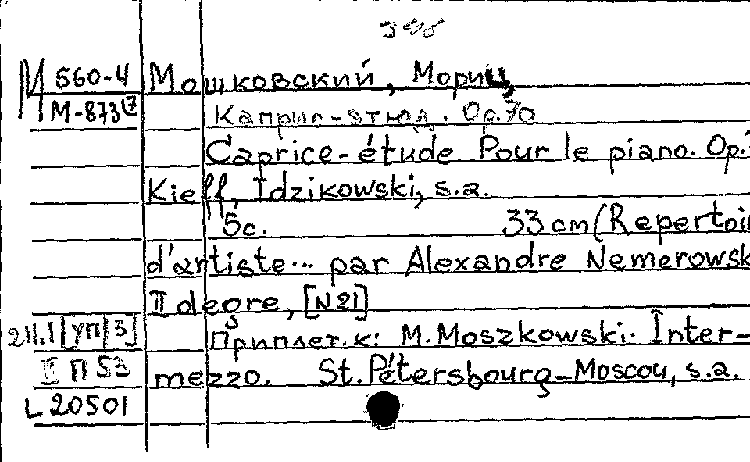 М 560-4 Мошковский, Мориц,
М-873 Каприс-этюд. Ор.70
Caprice-étude Pour le piano. Op.
Kieff, Idzikowski, s.a.
5c. 33 cm (Repertoi
d'artiste... par Alexandre Nemerowsk
II degre, [N 21]
211.1 [УП/3] Приплет. к: M. Moszkowski. Inter-
II П 53 mezzo. St. Pétersbourg-Moscou, s.a.
L 20501